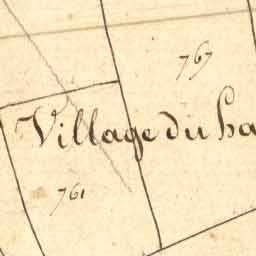 767
Village du ha
761